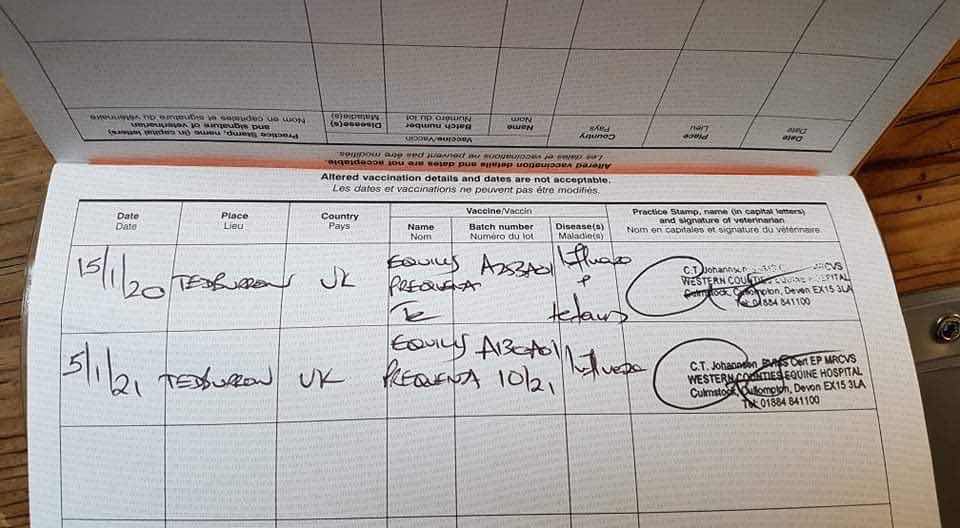 Practice Stamp, name (in capital letters)
and signature of veterinarian
Nom en capitales et signature du vétérinaire
Disease(s)
Maladie(s)
Batch number
Numéro du lot
Name
Nom
Vaccine/Vaccin
Country
Pays
Place
Lieu
Date
Date
Altered vaccination details and dates are not acceptable.
Les dates et vaccinations ne peuvent pas être modifiés.
Altered vaccination details and dates are not acceptable.
Les dates et vaccinations ne peuvent pas être modifiés.
Date
Date
Place
Lieu
Country
Pays
Vaccine/Vaccin
Name
Nom
Batch number
Numéro du lot
Disease(s)
Maladie(s)
Practice Stamp, name (in capital letters)
and signature of veterinarian
Nom en capitales et signature du vétérinaire.
15/1/20
UK
EQUILIS
PREQUENZA
Te
Influenza
+
tetanus
C.T. Johannson MRCVS
WESTERN COUNTIES EQUINE HOSPITAL
Culmstock, Cullompton, Devon EX15 3LA
Tel: 01884 841100
5/1/21
UK
EQUILIS
PREQUENZA
10/21
Influenza
C.T. Johannson BVMS Cert EP MRCVS
WESTERN COUNTIES EQUINE HOSPITAL
Culmstock, Cullompton, Devon EX15 3LA
Tel: 01884 841100